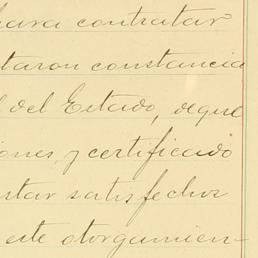 para contratar
taron constancia
l del Estado, de que
iones y certificado
star satisfechos
este otorgamien-